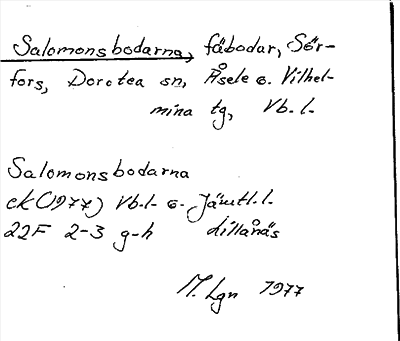 Salomonsbodarna, fäbodar, Sör-
fors, Dorotea sn, Åsele o. Vilhel-
mina tg, Vb.l.
Salomonsbodarna
ek (1977) Vb.l. o. Jämtl.l.
22F 2-3 g-h Lillånäs
M. Lgn 1977